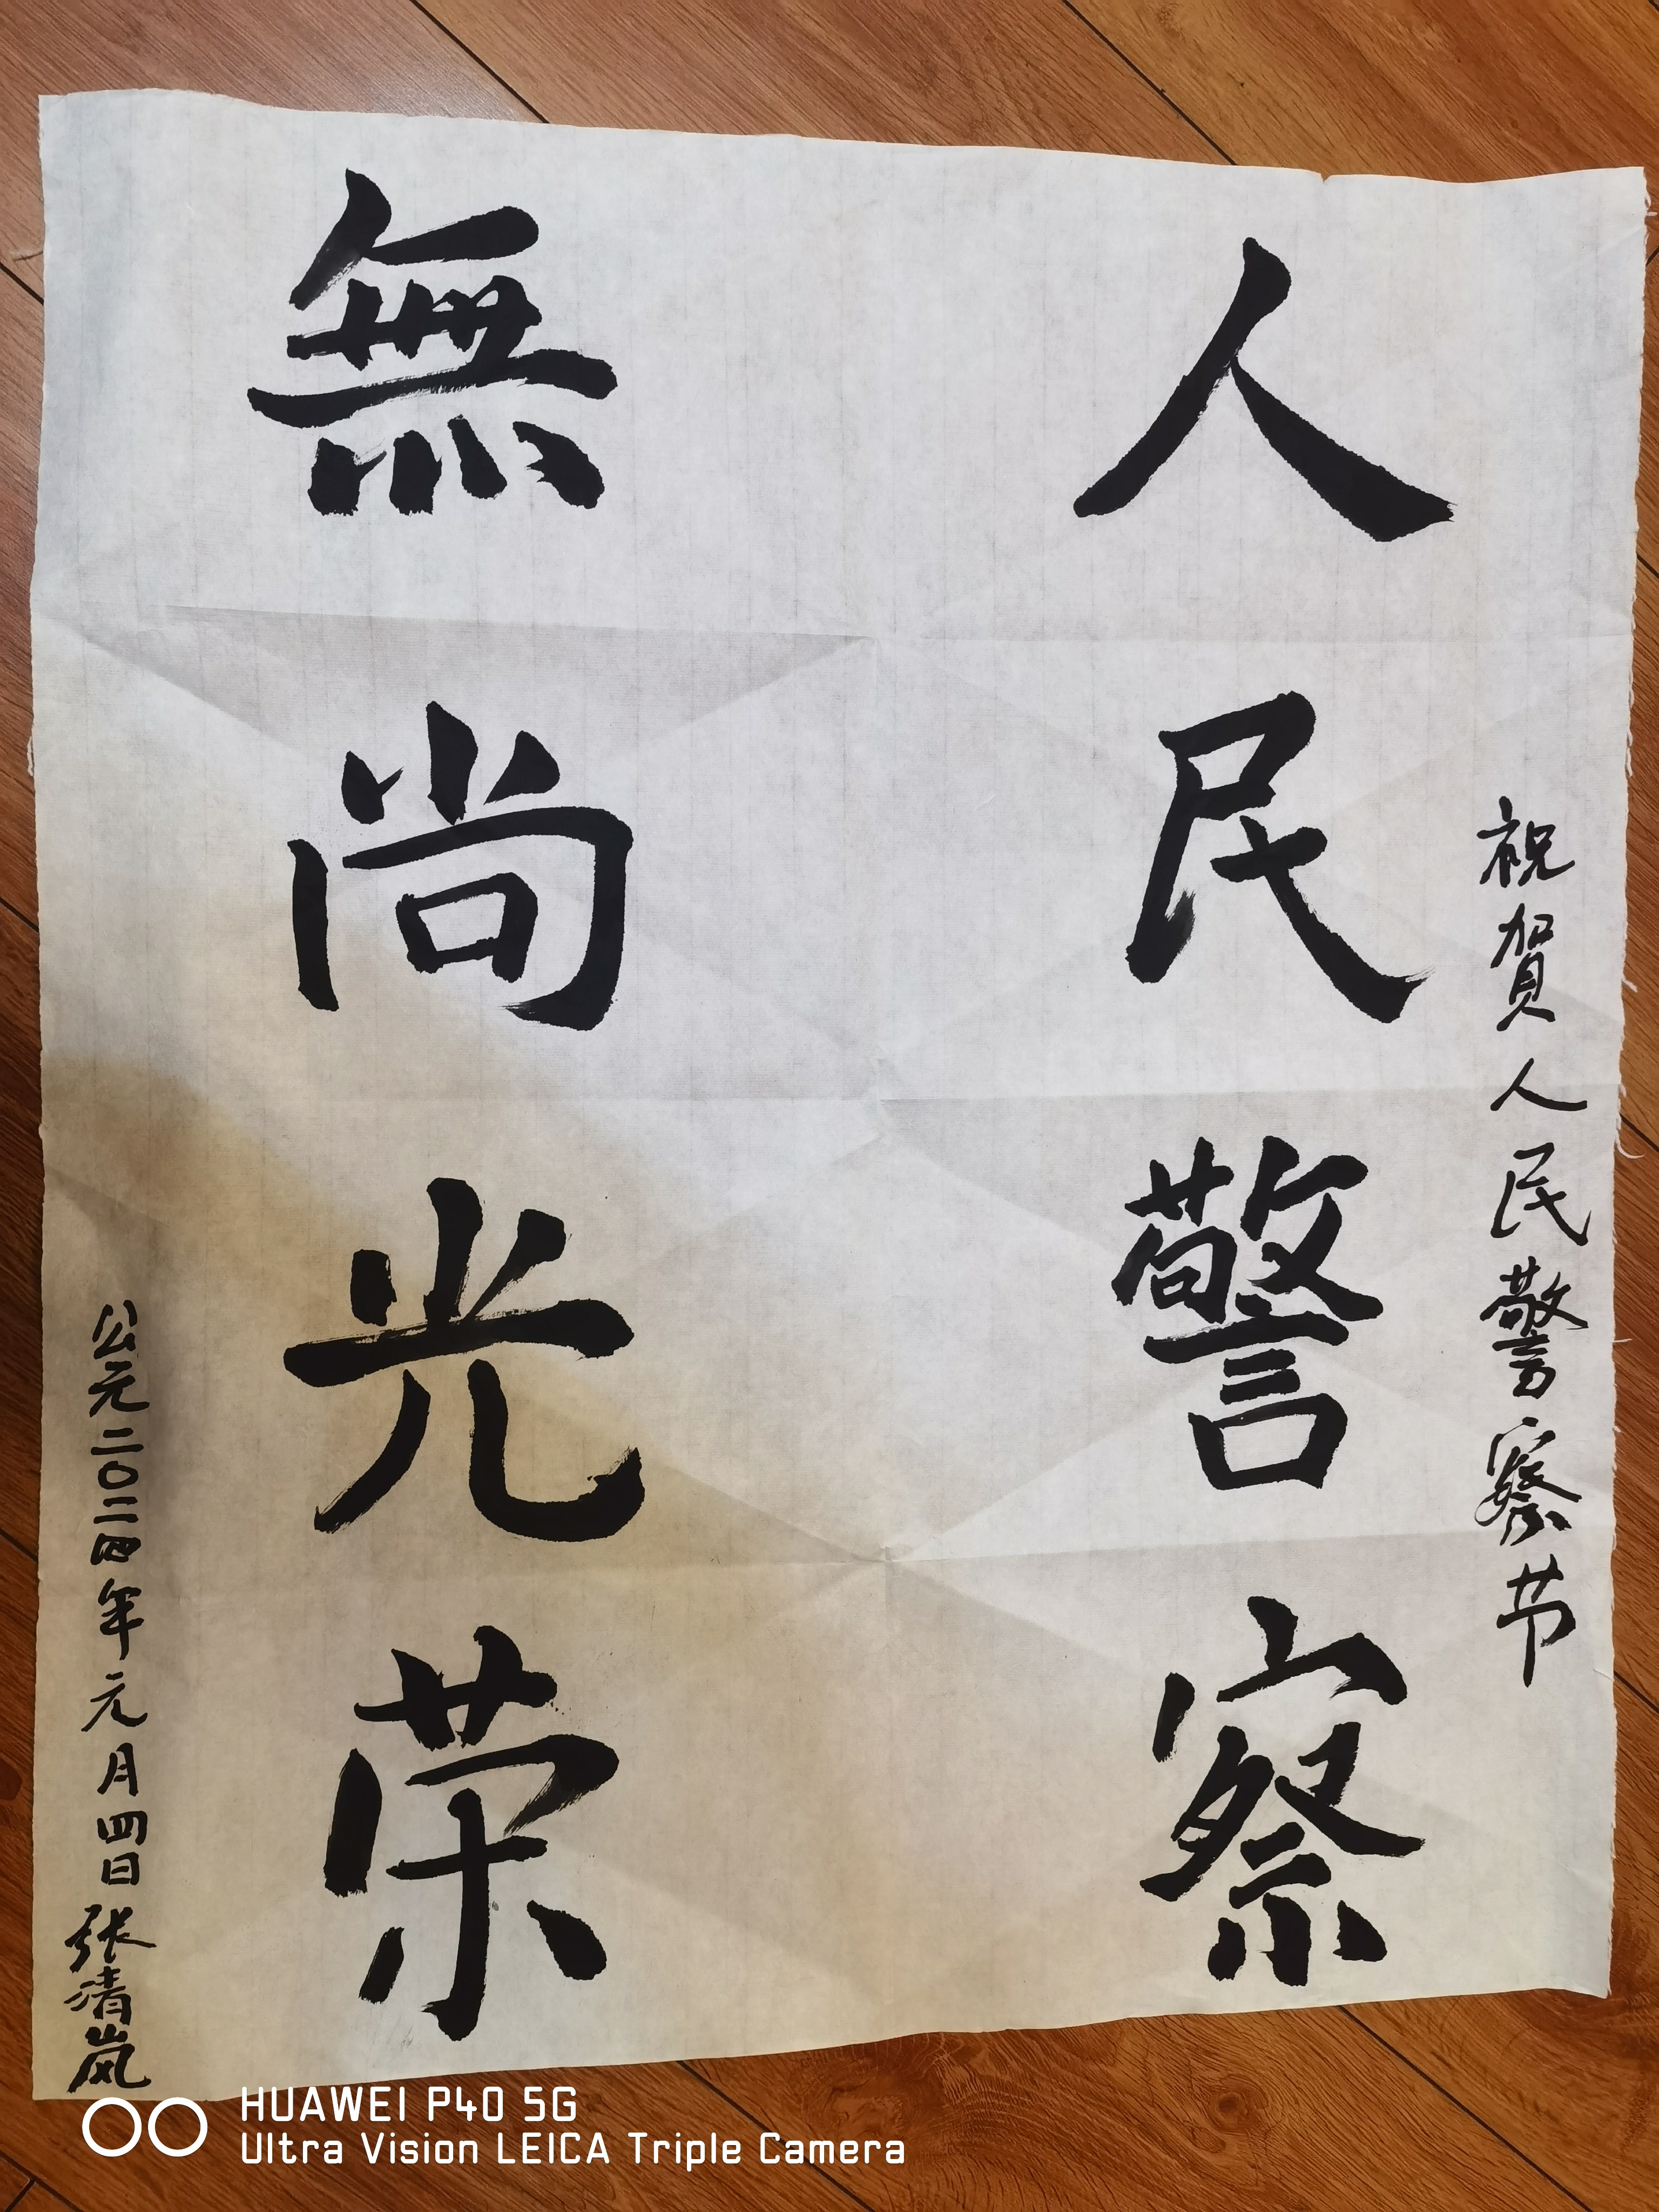 祝賀人民警察节
人民警察
無尚光荣
公元二〇二四年元月四日张清岚
HUAWEI P40 5G
Ultra Vision LEICA Triple Camera